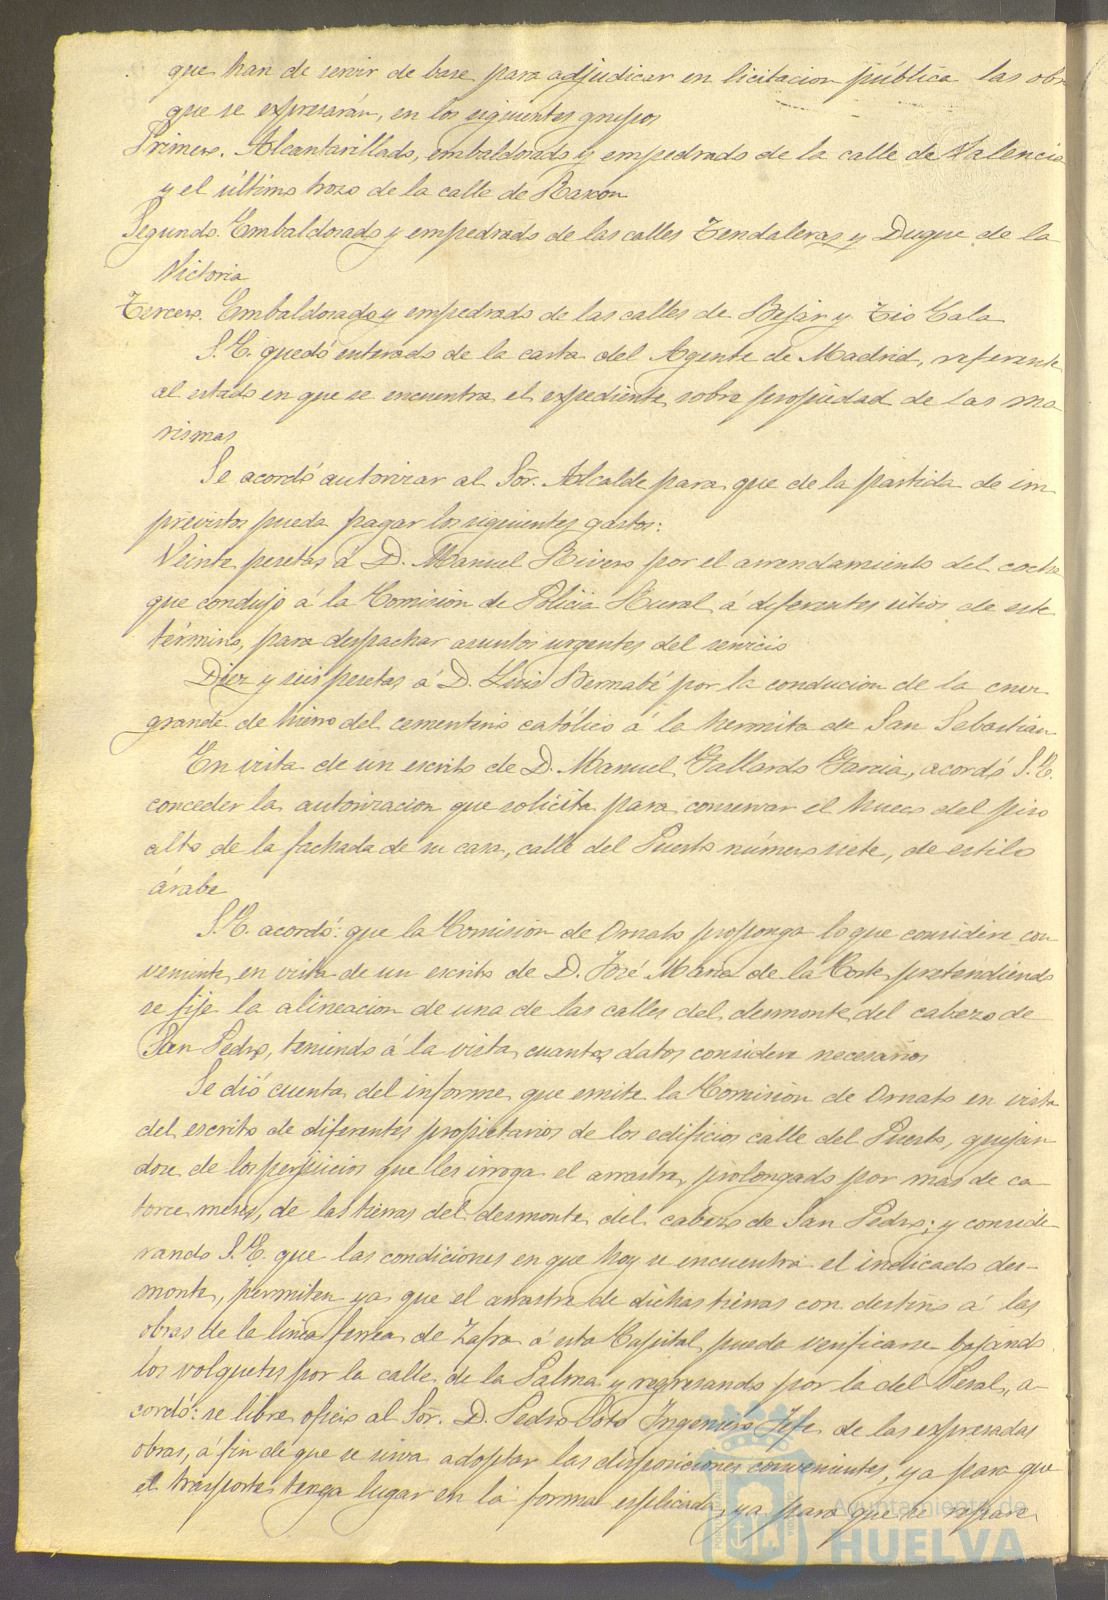 que han de servir de base para adjudicar en licitacion pública las obr
que se expresarán, en los siguientes grupos
Primero. Alcantarillado, embaldosado y empedrado de la calle de Valencia
y el último trozo de la calle de Rascon
Segundo. Embaldosado y empedrado de las calles Tendaleras y Duque de la
Victoria
Tercero. Embaldosado y empedrado de las calles de Bejar y Tio Cala
S.E. quedó enterado de la carta del Agente de Madrid, referente
al estado en que se encuentra el expediente sobre propiedad de las ma
rismas
Se acordó autorizar al Sör. Alcalde para que de la partida de im
previstos pueda pagar los siguientes gastos:
Veinte pesetas á D. Manuel Rivero por el arrendamiento del coche
que condujo á la Comision de Policia Rural á diferentes sitios de este
término, para despachar asuntos urgentes del servicio
Diez y seis pesetas á D. Luis Bernabé por la conducion de la cruz
grande de hierro del cementerio católico á la hermita de San Sebastián
En vista de un escrito de D. Manuel Gallardo Garcia, acordó S.E.
conceder la autorizacion que solicita para conservar el hueco del piso
alto de la fachada de su casa, calle del Puerto número siete, de estilo
árabe
S.E. acordó: que la Comision de Ornato proponga lo que considere con-
veniente en vista de un escrito de D. José Maria de la Corte pretendiendo
se fije la alineacion de una de las calles del desmonte del cabezo de
San Pedro, teniendo á la vista cuantos datos considere necesarios
Se dió cuenta del informe que emite la Comision de Ornato en vista
del escrito de diferentes propietarios de los edificios calle del Puerto, quejan
dose de los perjuicios que les irroga el arrastre, prolongado por mas de ca-
torce meses, de las tierras del desmonte del cabezo de San Pedro; y conside-
rando S.E. que las condiciones en que hoy se encuentra el indicado des-
monte, permiten ya que el arrastre de dichas tierras con destino á las
obras de la linea ferrea de Zafra á esta Capital, puede verificarse bajando
los volquetes por la calle de la Palma y regresando por la del Peral, a-
cordó: se libre oficio al Sör. D. Pedro Soto Ingeniero Jefe de las expresadas
obras, á fin de que se sirva adoptar las disposiciones convenientes, ya para que
el trasporte tenga lugar en la forma esplicada, ya para que se repare
Ayuntamiento de
HUELVA